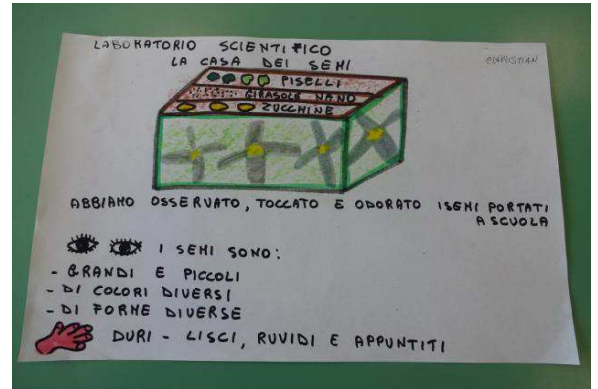 LABORATORIO SCIENTIFICO
CHRISTIAN
LA CASA DEI SEMI
PISELLI
GIRASOLE NANO
ZUCCHINE
ABBIAMO OSSERVATO, TOCCATO E ODORATO I SEMI PORTATI
A SCUOLA
I SEMI SONO:
- GRANDI E PICCOLI
- DI COLORI DIVERSI
- DI FORME DIVERSE
DURI - LISCI, RUVIDI E APPUNTITI